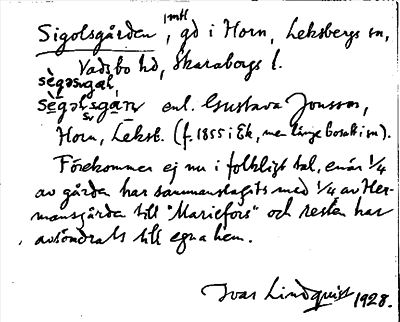 Sigolsgården, mtl, gd i Horn, Leksbergs sn,
Vadsbo hd, Skaraborgs l.
sègəsgaḷ,
sègəlsgaṇ enl. Gustava Jonsson,
Horn, Leksb. (f. 1855 i Ek, men länge bosatt i sn).
Förekommer ej nu i folkligt tal, enär 1/4
av gården har sammanslagits med 1/4 av Her-
mansgården till "Mariefors" och resten har
avsöndrats till egna hem.
Ivar Lindquist 1928.